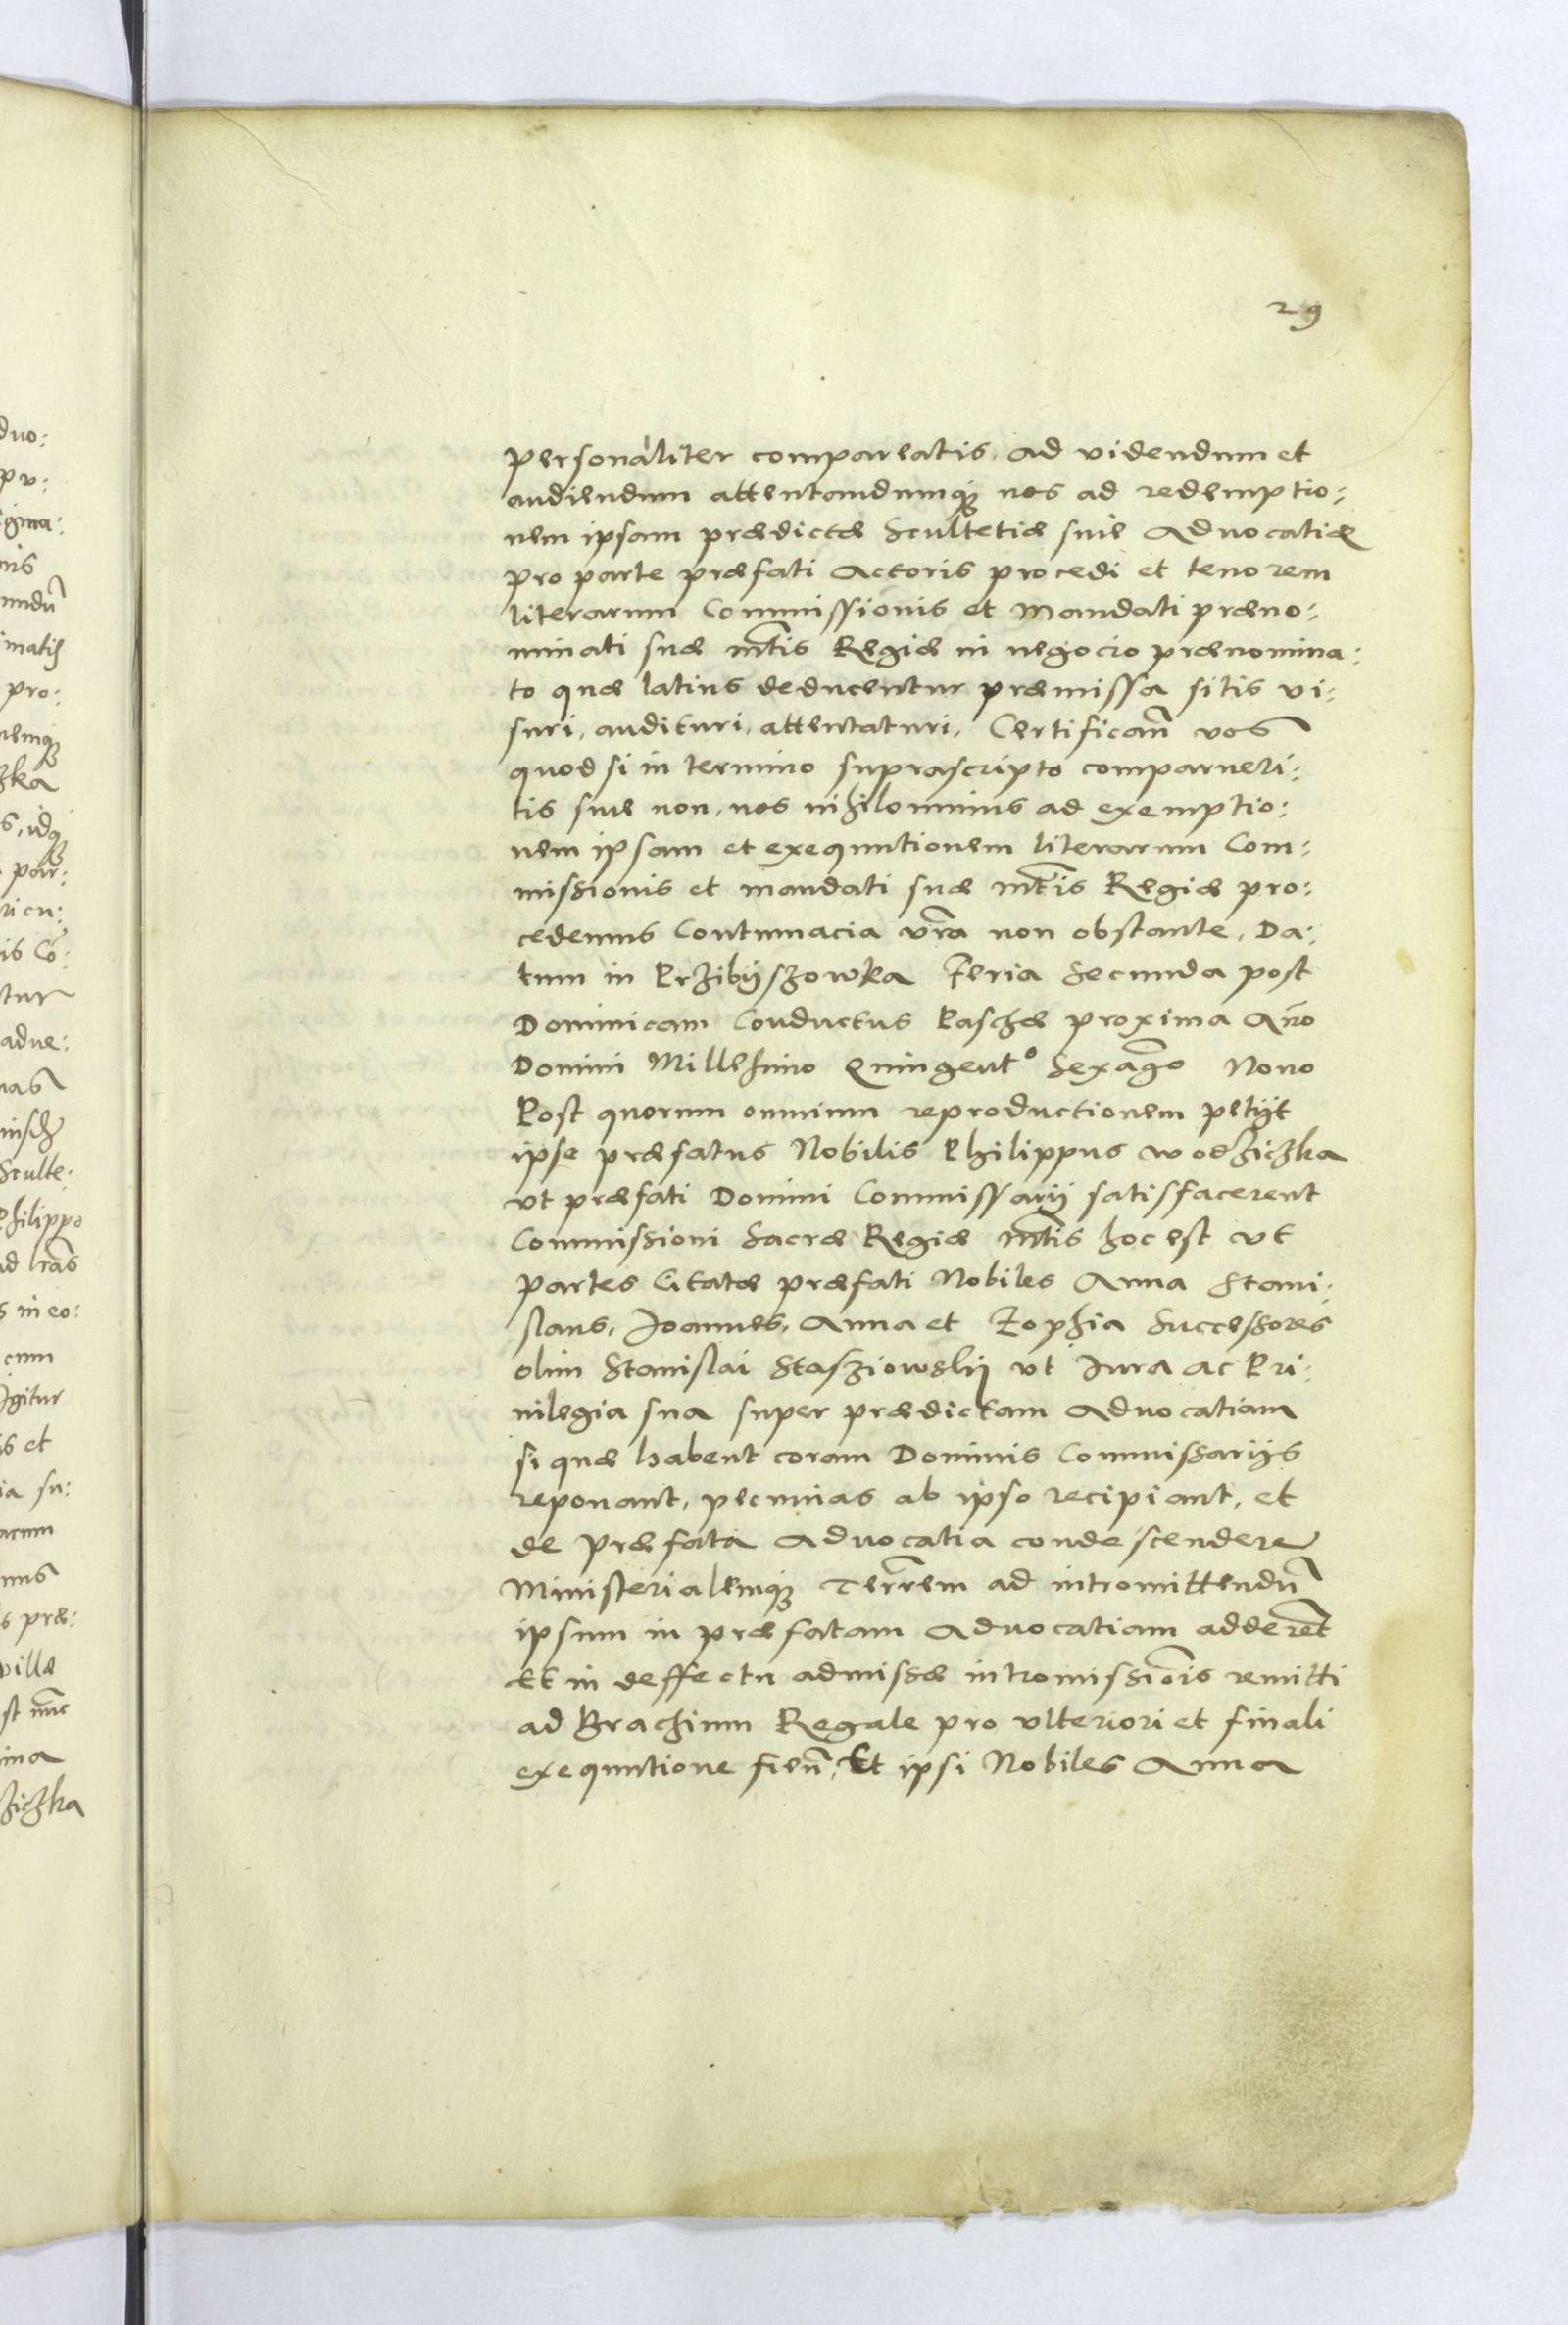 29
personaliter compareatis, ad videndum et
audiendum attentandumq́ue nos ad redemptio:
nem ipsam prædictæ Scultetiæ siue Aduocatiæ
pro parte præfati Actoris procedi et tenorem
literarum Commissionis et Mandati præno:
minati suæ Mtis Regiæ in negocio prænomina:
to quæ latius deducentur præmissa sitis vi:
suri, audituri, attentaturi, Certifican̄ vos
quod si in termino suprascripto comparueri:
tis siue non, nos nihilominus ad exemptio:
nem ipsam et exequutionem literarum Com:
missionis et mandati suæ Mtis Regiæ pro:
cedemus Contumacia vr̃a non obstante, Da:
tum in Przibÿszowka Feria Secunda post
Dominicam Conductus Paschæ proxima Año
Domini Millesimo Quingentº Sexago Nono
Post quorum omnium reproductionem petijt
ipse præfatus Nobilis Philippus Wodziczka
vt præfati Domini Commissarij satisfacerent
Commissioni Sacræ Regiæ Mtis hoc est vt
partes Citatæ præfati Nobiles Anna Stani:
slaus, Joannes, Anna et Zophia Successores
olim Stanislai Stasziowskij vt Jura ac Pri:
uilegia sua super prædictam Aduocatiam
si quæ habent coram Dominis Commissarijs
reponant, pecunias ab ipso recipiant, et
de præfata Aduocatia condescendere
Ministerialemq́ue Terrem ad intromittendū
ipsum in præfatam Aduocatiam adderēt
Et in deffectu admissæ intromissiōis remitti
ad Brachium Regale pro vlteriori et finali
exequutione fien̄, Et ipsi Nobiles Anna